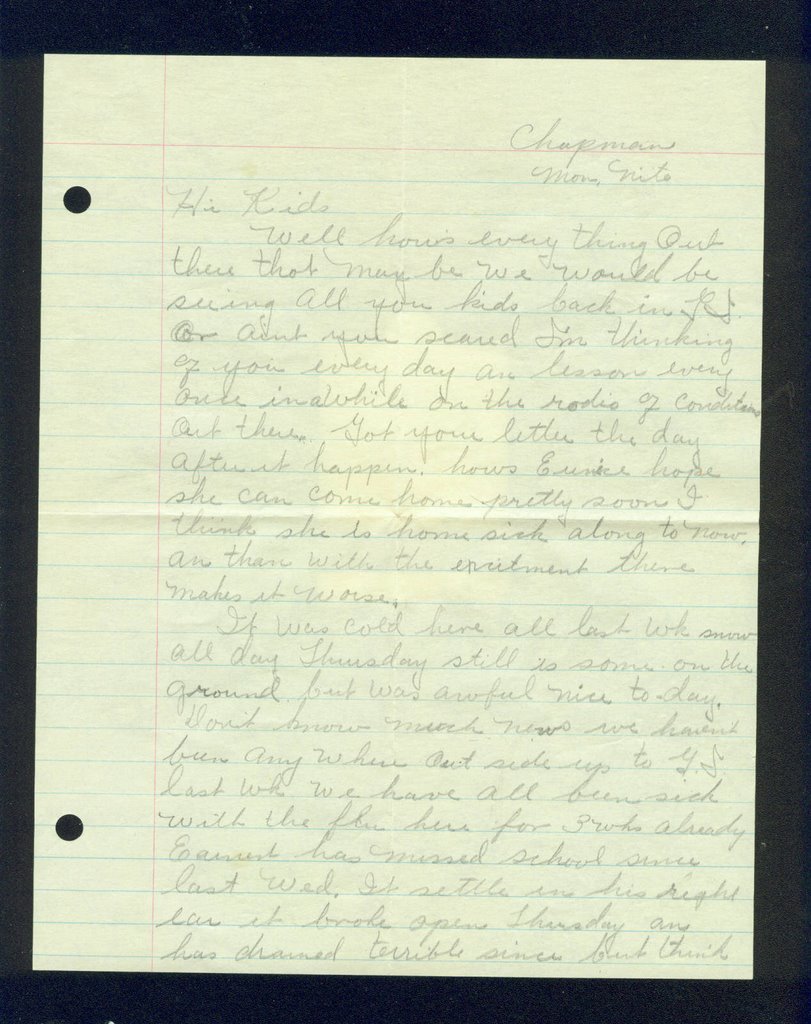 Chapman
Mon, Nite
Hi Kids
Well how's every thing Out
there that may be we would be
seeing all you kids back in
Or aint you scared Im thinking
of you every day an lesson every
once in a while on the rodio of conditions
out there. Got your letter the day
after it happen. hows Eunice hope
she can come home pretty soon I
think she is home sick along to now.
an than with the excitment there
makes it worse.
It was cold here all last wk snow
all day Thursday still is some on the
ground but was awful nice to-day.
Don't know much news we haven't
been any where out side up to G.I
last wk we have all been sick
with the flu here for 3 wks already
Earnest has missed school since
last Wed. It settle in his right
ear it broke open Thursday an
has drained terrible since but think